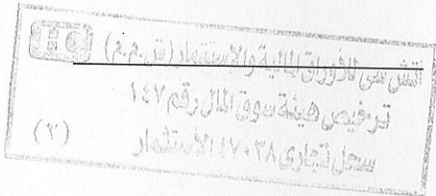 اتش سى للأوراق المالية والإستثمار (ش.م.م) HC
ترخيص هيئة سوق المال رقم ١٤٧
سجل تجارى ١٤٧٠٢٨ الاستثمار
(٢)